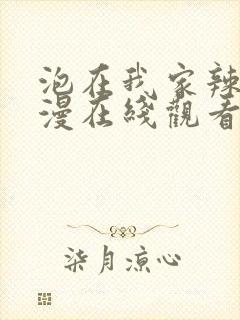 泡在我家辣
漫在綫觀看
柒月涼心